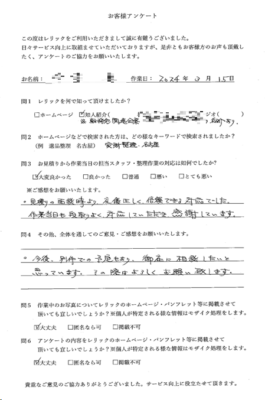 お客様アンケート
この度はレリックをご利用いただきまして誠に有難うございました。
日々サービス向上に取組ませていただいておりますが、是非ともお客様方のお声も頂戴し
たく、アンケートのご協力をお願いいたします。
お名前: 作業日: 2024年 月 15日
問1 レリックを何で知って頂けましたか？
□ホームページ ☑知人紹介( ジオ(
問2 ホームページなどで検索された方は、どの様なキーワードで検索されましたか？
(例 遺品整理 名古屋)
問3 お見積りから作業当日の担当スタッフ・整理作業の対応は如何でしたか？
☑大変良かった □良かった □普通 □悪い □とても悪い
※ご感想をお願いいたします。
・見積りの面談時より、礼儀正しく、信頼できる対応でした。
作業当日も段取りよく対応していただき感謝しています。
問4 その他、全体を通してのご意見・ご感想をお願いいたします。
・今後、別件での予定もあり、御社に相談したいと
思っています。その際はよろしくお願い致します。
問5 作業中のお写真についてレリックのホームページ・パンフレット等に掲載させて
頂いても宜しいでしょうか？※個人が特定される様な情報はモザイク処理をします。
☑大丈夫 □匿名なら可 □掲載不可
問6 アンケートの内容をレリックのホームページ・パンフレット等に掲載させて
頂いても宜しいでしょうか？※個人が特定される様な情報はモザイク処理をします。
☑大丈夫 □匿名なら可 □掲載不可
貴重なご意見のご協力ありがとうございました。サービス向上に役立たせて頂きます。